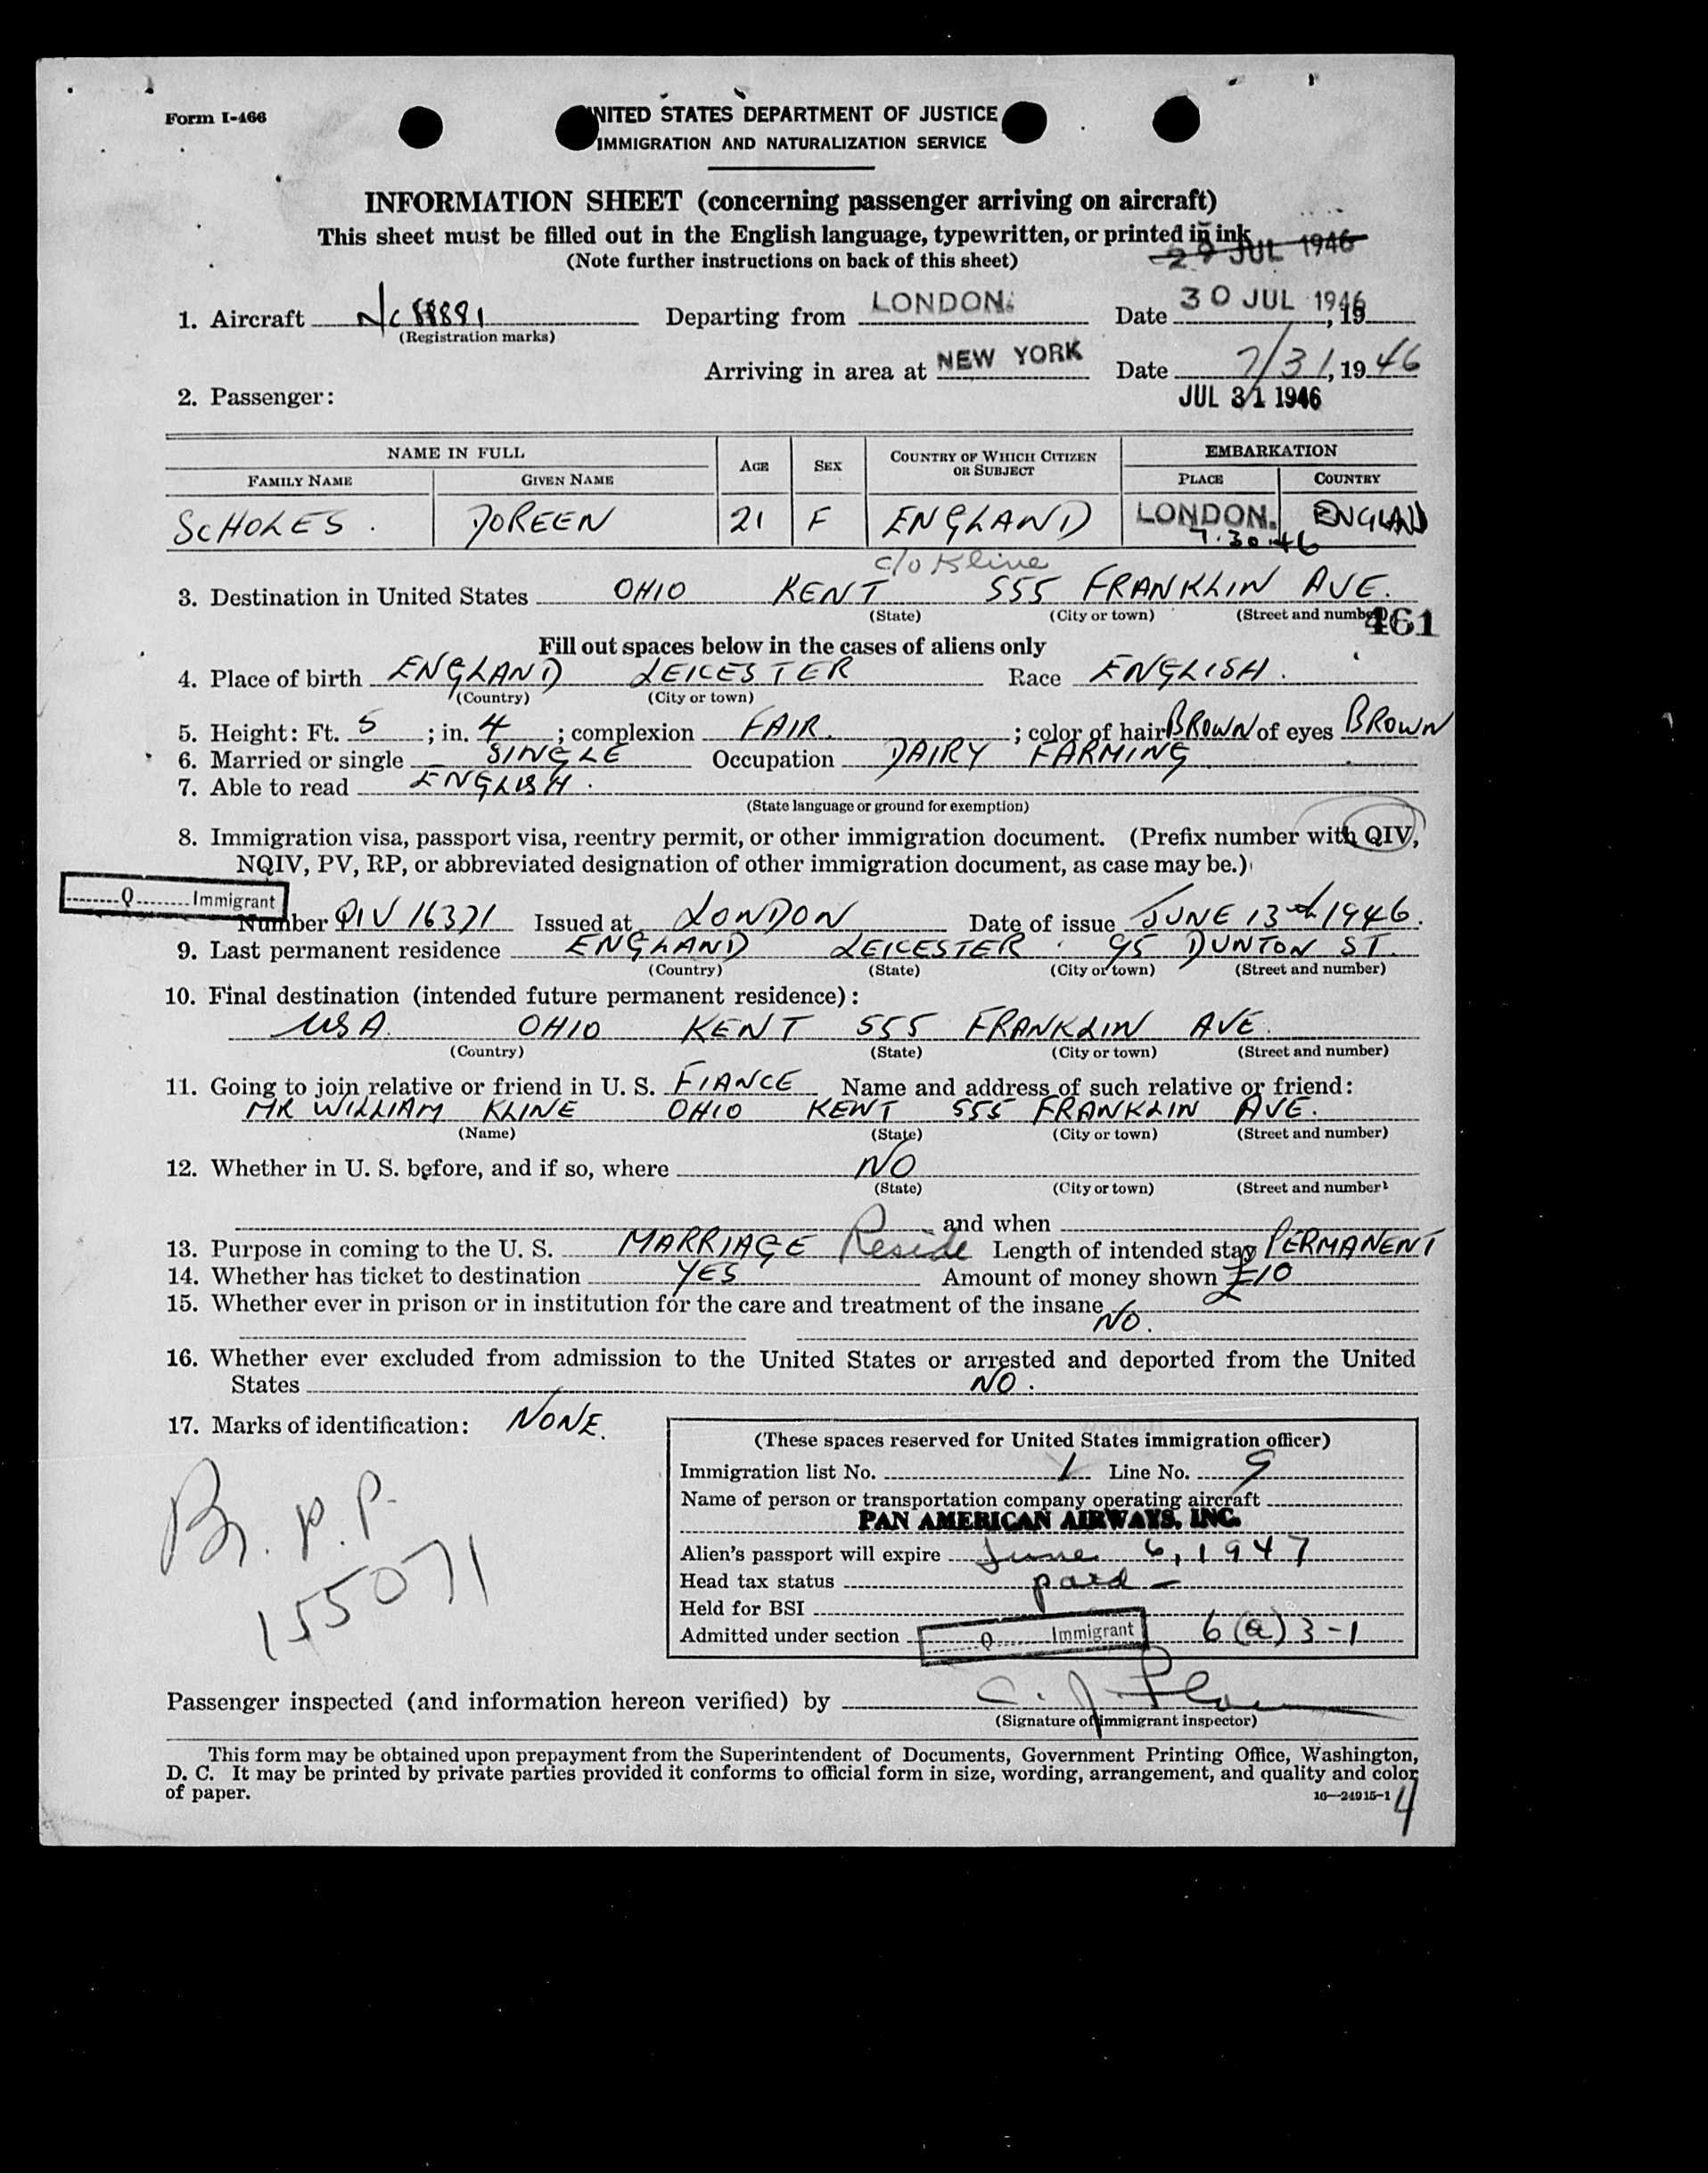 Form I-466
UNITED STATES DEPARTMENT OF JUSTICE
IMMIGRATION AND NATURALIZATION SERVICE
INFORMATION SHEET (concerning passenger arriving on aircraft)
This sheet must be filled out in the English language, typewritten, or printed in ink
(Note further instructions on back of this sheet)
29 JUL 1946
1. Aircraft NC 88881 Departing from LONDON. Date 30 JUL 1946, 19
(Registration marks)
Arriving in area at NEW YORK Date 7/31, 1946
2. Passenger: JUL 31 1946
NAME IN FULL AGE SEX COUNTRY OF WHICH CITIZEN OR SUBJECT EMBARKATION
FAMILY NAME GIVEN NAME PLACE COUNTRY
SCHOLES. DOREEN 21 F ENGLAND LONDON. ENGLAND
7.30.46
c/o Kline
3. Destination in United States OHIO KENT 555 FRANKLIN AVE.
(State) (City or town) (Street and number)
461
Fill out spaces below in the cases of aliens only
4. Place of birth ENGLAND LEICESTER Race ENGLISH.
(Country) (City or town)
5. Height: Ft. 5; in. 4; complexion FAIR.; color of hair BROWN of eyes BROWN
6. Married or single SINGLE Occupation DAIRY FARMING
7. Able to read ENGLISH.
(State language or ground for exemption)
8. Immigration visa, passport visa, reentry permit, or other immigration document. (Prefix number with QIV,
NQIV, PV, RP, or abbreviated designation of other immigration document, as case may be.)
Q Immigrant
Number QIV 16371 Issued at LONDON Date of issue JUNE 13th 1946.
9. Last permanent residence ENGLAND LEICESTER 95 DUNTON ST.
(Country) (State) (City or town) (Street and number)
10. Final destination (intended future permanent residence):
USA. OHIO KENT 555 FRANKLIN AVE.
(Country) (State) (City or town) (Street and number)
11. Going to join relative or friend in U. S. FIANCE Name and address of such relative or friend:
MR WILLIAM KLINE OHIO KENT 555 FRANKLIN AVE.
(Name) (State) (City or town) (Street and number)
12. Whether in U. S. before, and if so, where NO
(State) (City or town) (Street and number)
and when
13. Purpose in coming to the U. S. MARRIAGE Reside Length of intended stay PERMANENT
14. Whether has ticket to destination YES Amount of money shown £10
15. Whether ever in prison or in institution for the care and treatment of the insane
NO.
16. Whether ever excluded from admission to the United States or arrested and deported from the United
States NO.
17. Marks of identification: NONE.
Br. P.P.
155071
(These spaces reserved for United States immigration officer)
Immigration list No. 1 Line No. 9
Name of person or transportation company operating aircraft
PAN AMERICAN AIRWAYS, INC.
Alien's passport will expire June 6, 1947
Head tax status paid -
Held for BSI
Admitted under section Q Immigrant 6(a)3-1
Passenger inspected (and information hereon verified) by
(Signature of immigrant inspector)
This form may be obtained upon prepayment from the Superintendent of Documents, Government Printing Office, Washington,
D. C. It may be printed by private parties provided it conforms to official form in size, wording, arrangement, and quality and color
of paper.
16—24915-1
4